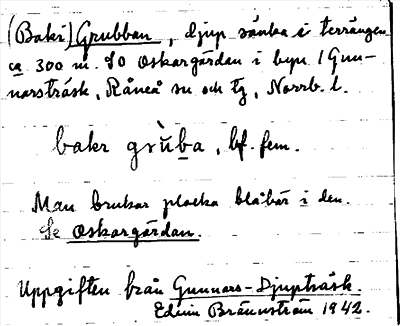 (Baki) Grubban, djup sänka i terrängen
ca 300 m. SO Oskargården i byn / Gun-
narsträsk, Råneå sn och tg, Norrb. l.
bakr grùba, bf. fem.
Man brukar plocka blåbär i den.
Se Oskargårdan.
Uppgiften från Gunnars-Djupträsk.
Edvin Brännström 1942.